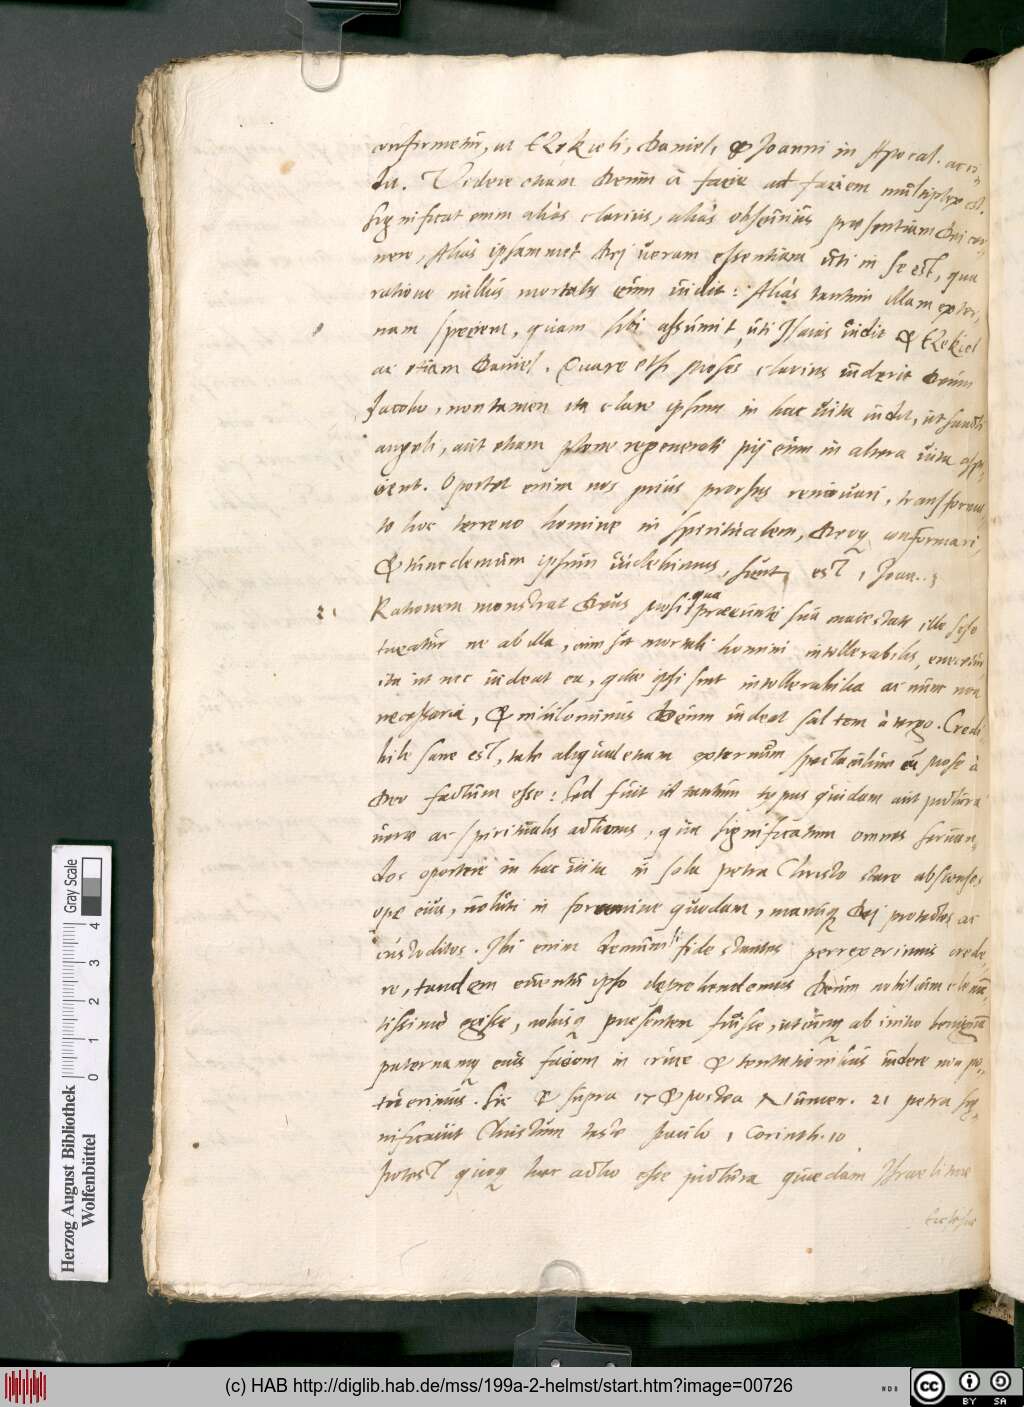 confirmetur, ut Ezekieli, Danieli, & Joanni in Apocal. acci-
dit. Videre etiam Deum à facie ad faciem multiplex est.
Significat enim aliàs clariùs, aliàs obscuriùs praesentiam Dei cer-
nere, Aliàs ipsammet Dei veram essentiam uti in se est, qua
ratione nullus mortalis eum vidit: Aliàs tantum illam exter-
nam speciem, quam sibi assumit, uti Isaias vidit & Ezekiel
ac etiam Daniel. Quare etsi Moses clarius viderit Deum
Jacobo, non tamen ita clare ipsum in hac vita vidit, ut sancti
angeli, aut etiam plene regenerati pij eum in altera vita aspi-
cient. Oportet enim nos prius prorsus renovari, transforma-
to hoc terreno homine in spiritualem, Deoque conformari,
& tunc demum ipsum videbimus, sicuti est, 1 Joan. 3
21 Rationem monstrat Deus Mosi qua praeeunte sua maiestate ille sese
tueatur ne ab illa, cum sit mortali homini intollerabilis, enecetur
ita ut nec videat ea, quae ipsi sint intollerabilia ac nunc non
necessaria, & nihilominus Deum videat saltem à tergo. Credi-
bile sane est, tale aliquod etiam externum spectaculum cum Mose à
Deo factum esse: Sed fuit id tantum typus quidam aut pictura
verae ac spiritualis actionis, qua significatum omnes servan-
dos oportere in hac vita in sola petra Christo stare absconsos
ope eius, veluti in foramine quodam, manuque Dei protectos ac
custoditos. Ibi enim demum si fide stantes perrexerimus crede-
re, tandem eventu ipso deprehendemus Deum nobiscum clemen-
tissimè egisse, nobisque praesentem fuisse, utcunque ab initio benignam
paternamque eius faciem in cruce & tentationibus videre non po-
tuerimus. Sic & supra 17 & postea Numer. 21 petra sig-
nificavit Christum teste Paulo 1 Corinth. 10
Potest quoque haec actio esse pictura quaedam Israeliticae
Ecclesiae
Herzog August Bibliothek
Wolfenbüttel
0 1 2 3 4
Gray Scale
(c) HAB http://diglib.hab.de/mss/199a-2-helmst/start.htm?image=00726
cc BY SA